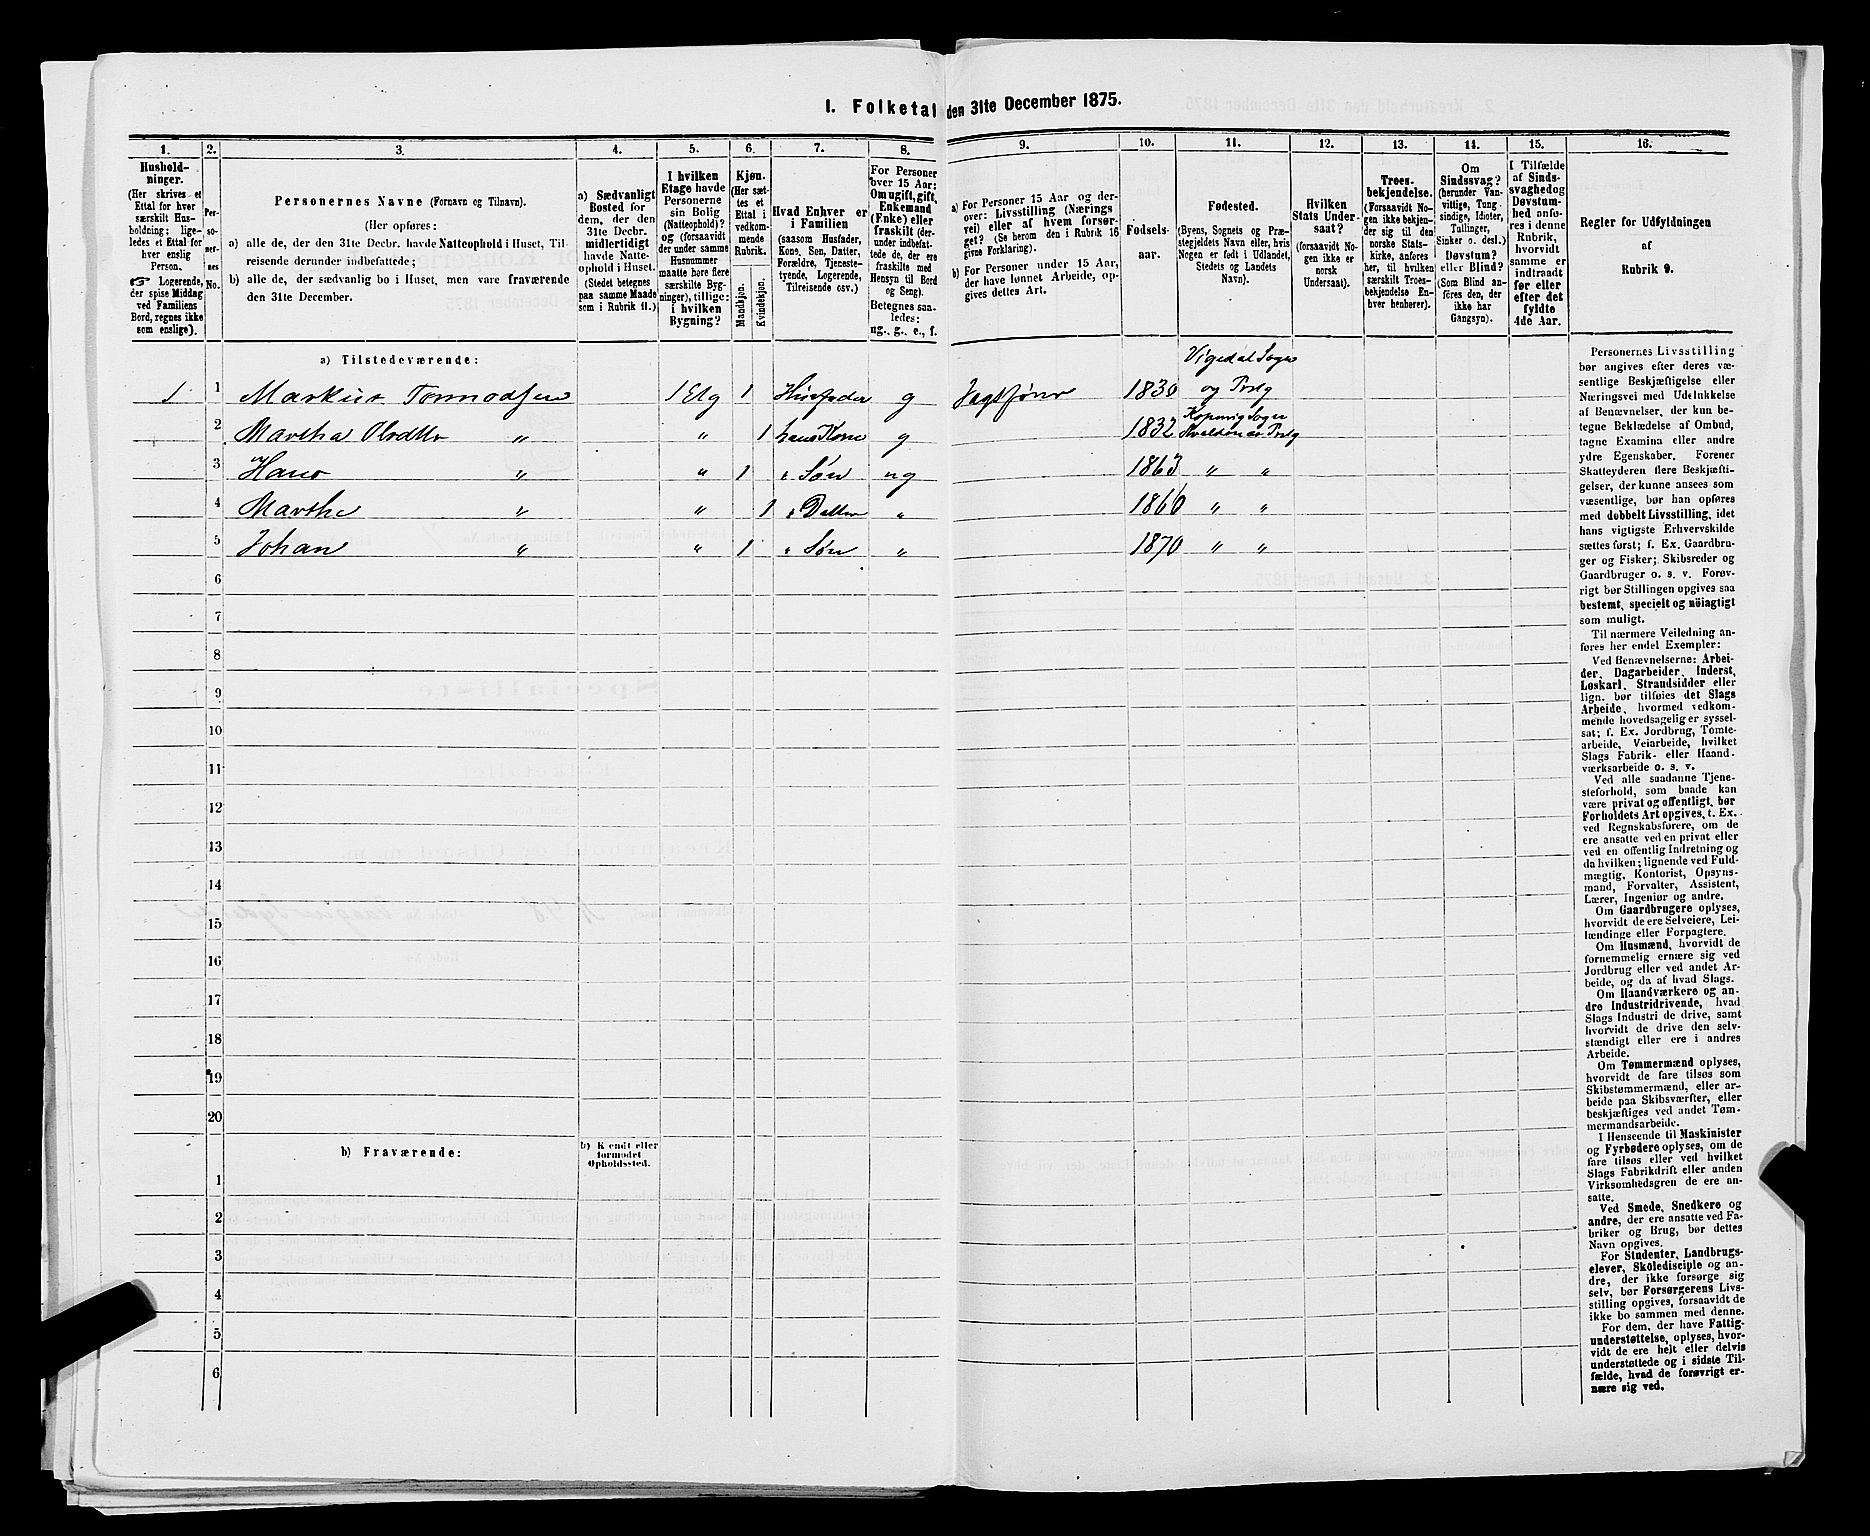 I. Folketal den 31te December 1875.
1.
Hushold-
ninger.
(Her skrives et
Ettal for hver
særskilt Hus-
holdning; lige-
ledes et Ettal for
hver enslig
Person.
☞ Logerende,
der spise Middag
ved Familiens
Bord, regnes ikke
som enslige).
2.
Per-
so-
ner-
nes
No.
3.
Personernes Navne (Fornavn og Tilnavn).
(Her opføres:
a) alle de, der den 31te Decbr. havde Natteophold i Huset, Til-
reisende derunder indbefattede;
b) alle de, der sædvanlig bo i Huset, men vare fraværende
den 31te December.
4.
a) Sædvanligt
Bosted for
dem, der den
31te Decbr.
midlertidigt
havde Natte-
ophold i Huset.
(Stedet betegnes
paa samme Maade
som i Rubrik 11.)
5.
I hvilken
Etage havde
Personerne
sin Bolig
(Natteophold)?
og (forsaavidt
der under samme
Husnummer
maatte høre flere
særskilte Byg-
ninger), tillige:
i hvilken
Bygning?
6.
Kjøn.
(Her sæt-
tes et
Ettal i
vedkom-
mende
Rubrik.
Mandkjøn.
Kvindekjøn.
7.
Hvad Enhver er
i Familien
(saasom Husfader,
Kone, Søn, Datter,
Forældre, Tjeneste-
tyende, Logerende,
Tilreisende osv.)
8.
For Personer
over 15 Aar:
Om ugift, gift,
Enkemand
(Enke) eller
fraskilt (der-
under indbefat-
tede de, der ere
fraskilte med
Hensyn til Bord
og Seng).
Betegnes saa-
ledes:
ug., g., e., f.
9.
a) For Personer 15 Aar og der-
over: Livsstilling (Nærings
vei) eller af hvem forsør-
get? (Se herom den i Rubrik 16
givne Forklaring).
b) For Personer under 15 Aar,
der have lønnet Arbeide, op-
gives dettes Art.
10.
Fødsels-
aar.
11.
Fødested.
(Byens, Sognets og Præ-
stegjeldets Navn eller, hvis
Nogen er født i Udlandet,
Stedets og Landets
Navn).
12.
Hvilken
Stats Under-
saat?
(forsaavidt No-
gen ikke er
norsk
Undersaat).
13.
Troes-
bekjendelse.
(Forsaavidt No-
gen ikke bekjen-
der sig til den
norske Stats-
kirke, anføres
her, til hvilken
særskilt Troes-
bekjendelse En-
hver henhører).
14.
Om
Sindssvag?
(herunder Van-
vittige, Tung-
sindige, Idioter,
Tullinger,
Sinker o. desl.)
Døvstum?
eller Blind?
(Som Blind an-
føres den, der
ikke har
Gangsyn).
15.
I Tilfælde
af Sinds-
svaghed og
Døvstum-
hed anfø-
res i denne
Rubrik,
hvorvidt
samme er
indtraadt
før eller
efter det
fyldte
4de Aar.
16.
Regler for Udfyldningen
af
Rubrik 9.
a) Tilstedeværende:
Vigedal Sogn
1 1 Markus Tormodsen 1 Etg 1 Husfader g 1830 og Prstg
Kopervig Sogn
2 Martha " " 1 hans Kone g 1832 Prstg
3 Hans " " 1 " Søn ug 1863 " "
4 Marthe " " 1 " Datter " 1860 " "
5 Johan " " 1 " Søn " 1870 " "
6
7
8
9
10
11
12
13
14
15
16
17
18
19
20
b) Fraværende:
b) Kendt eller
formodet
Opholdssted.
1
2
3
4
5
6
Personernes Livsstilling
bør angives efter deres væ-
sentlige Beskjæftigelse eller
Næringsvei med Udelukkelse
af Benævnelser, der kun be-
tegne Beklædelse af Ombud,
tagne Examina eller andre
ydre Egenskaber. Forener
Skatteyderen flere Beskjæfti-
gelser, der kunne ansees som
væsentlige, bør han opføres
med dobbelt Livsstilling, idet
hans vigtigste Erhvervskilde
sættes først; f. Ex. Gaardbru-
ger og Fisker; Skibsreder og
Gaardbruger o. s. v. Forøv-
rigt bør Stillingen opgives saa
bestemt, specielt og nöiagtigt
som muligt.
Til nærmere Veiledning an-
føres her endel Exempler:
Ved Benævnelserne: Arbei-
der, Dagarbeider, Inderst,
Løskarl, Strandsidder eller
lign. bør tilføies det Slags
Arbeide, hvormed vedkom-
mende hovedsagelig er syssel-
sat; f. Ex. Jordbrug, Tomte-
arbeide, Veiarbeide, hvilket
Slags Fabrik- eller Haand-
værksarbeide o. s. v.
Ved alle saadanne Tjene-
steforhold, som baade kan
være privat og offentligt, bør
Forholdets Art opgives, t. Ex.
ved Regnskabsførere, om de
ere ansatte ved en privat eller
ved en offentlig Indretning og
da hvilken; lignende ved Fuld-
mægtig, Kontorist, Opsyns-
mand, Forvalter, Assistent,
Lærer, Ingeniør og andre.
Om Gaardbrugere oplyses,
hvorvidt de ere Selveiere, Lei-
lændinge eller Forpagtere.
Om Husmænd, hvorvidt de
fornemmelig ernære sig ved
Jordbrug eller ved andet Ar-
beide, og da af hvad Slags.
Om Haandværkere og an-
dre Industridrivende, hvad
Slags Industri de drive, samt
hvorvidt de drive den selv-
stændigt eller ere i andres
Arbeide.
Om Tømmermænd oplyses,
hvorvidt de fare tilsøs som
Skibstømmermænd, eller ar-
beide paa Skibsværfter, eller
beskjæftiges ved andet Tøm-
mermandsarbeide.
I Henseende til Maskinister
og Fyrbødere oplyses, om de
fare tilsøs eller ved hvilket
Slags Fabrikdrift eller anden
Virksomhedsgren de ere an-
satte.
Ved Smede, Snedkere og
andre, der ere ansatte ved Fa-
briker og Brug, bør dettes
Navn opgives.
For Studenter, Landbrugs-
elever, Skoledisciple og an-
dre, der ikke forsørge sig
selv, bør Forsørgerens Livs-
stilling opgives, forsaavidt de
ikke bo sammen med denne.
For dem, der have Fattig-
understøttelse, oplyses, hvor-
vidt de ere helt eller delvis
understøttede og i sidste Til-
fælde, hvad de forøvrigt er-
nære sig ved.